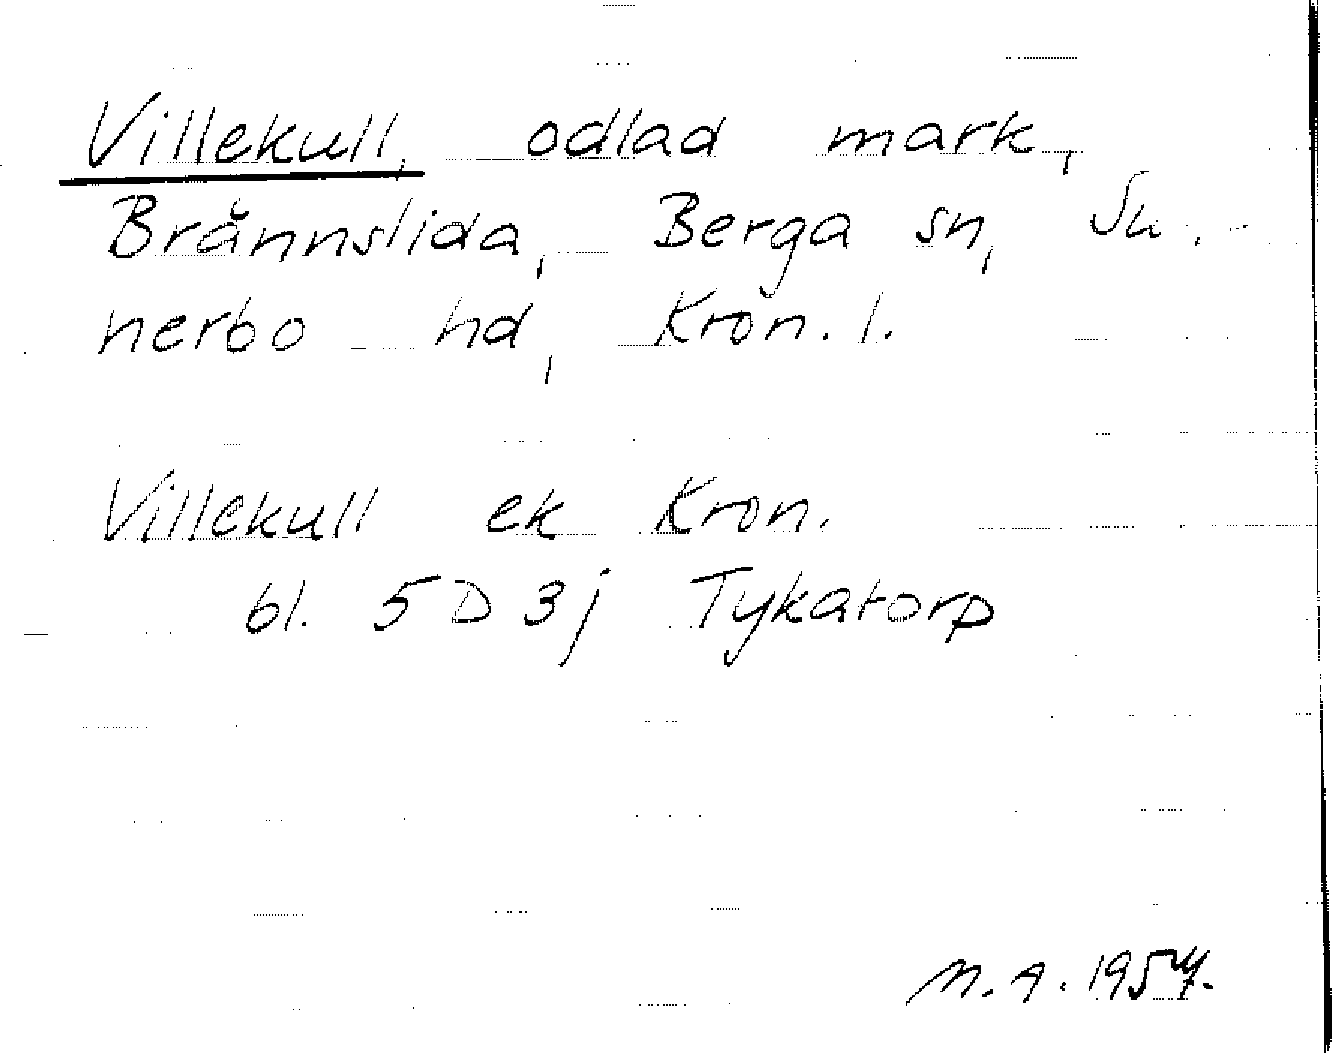 Villekull, odlad mark,
Brännslida, Berga sn, Su.
nerbo hd, Kron. l.
Villekull ek Kron.
bl. 5D 3j Tykatorp
M. A. 1954.